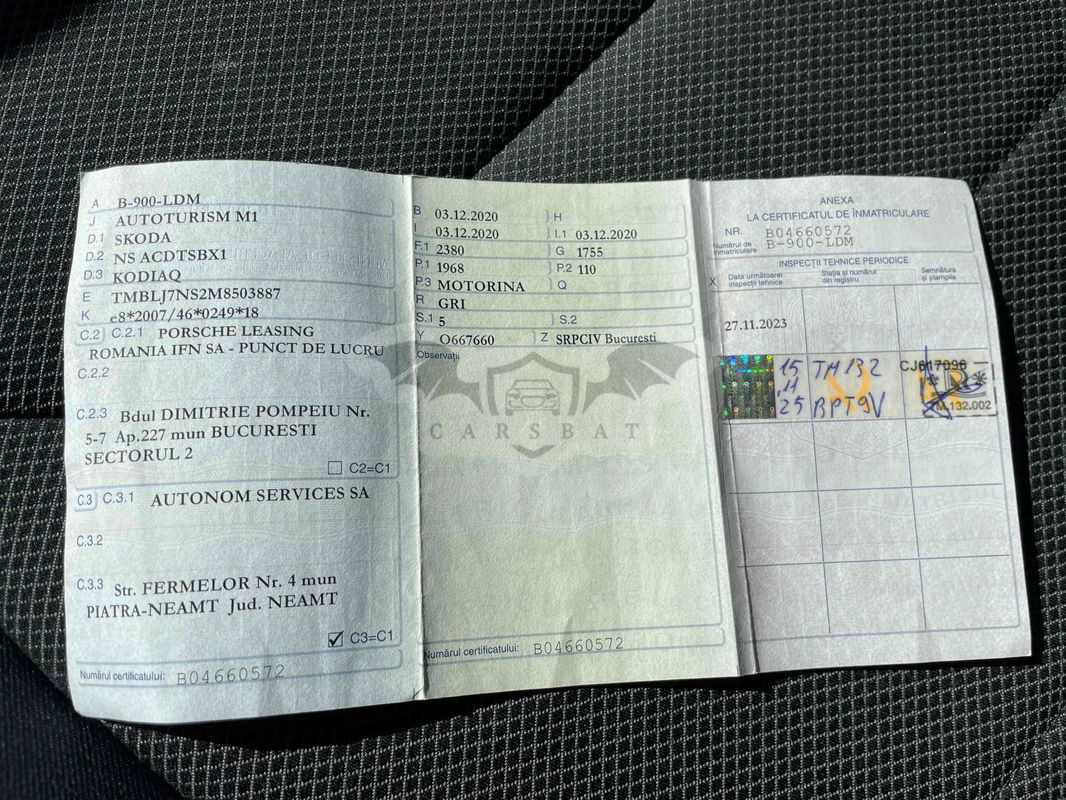 A B-900-LDM
J AUTOTURISM M1
D.1 SKODA
D.2 NS ACDTSBX1
D.3 KODIAQ
E TMBLJ7NS2M8503887
K e8*2007/46*0249*18
C.2 C.2.1 PORSCHE LEASING
ROMANIA IFN SA - PUNCT DE LUCRU
C.2.2
C.2.3 Bdul DIMITRIE POMPEIU Nr.
5-7 Ap.227 mun BUCURESTI
SECTORUL 2
C2=C1
C.3 C.3.1 AUTONOM SERVICES SA
C.3.2
C.3.3 Str. FERMELOR Nr. 4 mun
PIATRA-NEAMT Jud. NEAMT
C3=C1
Numărul certificatului: B04660572
B 03.12.2020 H
I 03.12.2020 I.1 03.12.2020
F.1 2380 G 1755
P.1 1968 P.2 110
P.3 MOTORINA Q
R GRI
S.1 5 S.2
Y O667660 Z SRPCIV Bucuresti
Observații
CARSBAT
Numărul certificatului: B04660572
ANEXA
LA CERTIFICATUL DE ÎNMATRICULARE
NR. B04660572
Numărul de
înmatriculare B-900-LDM
INSPECȚII TEHNICE PERIODICE
X Data următoarei
inspecții tehnice
Stația și numărul
din registru
Semnătura
și ștampila
27.11.2023
15 TM132 CJ617096
11
25 RPT9V M.132.002